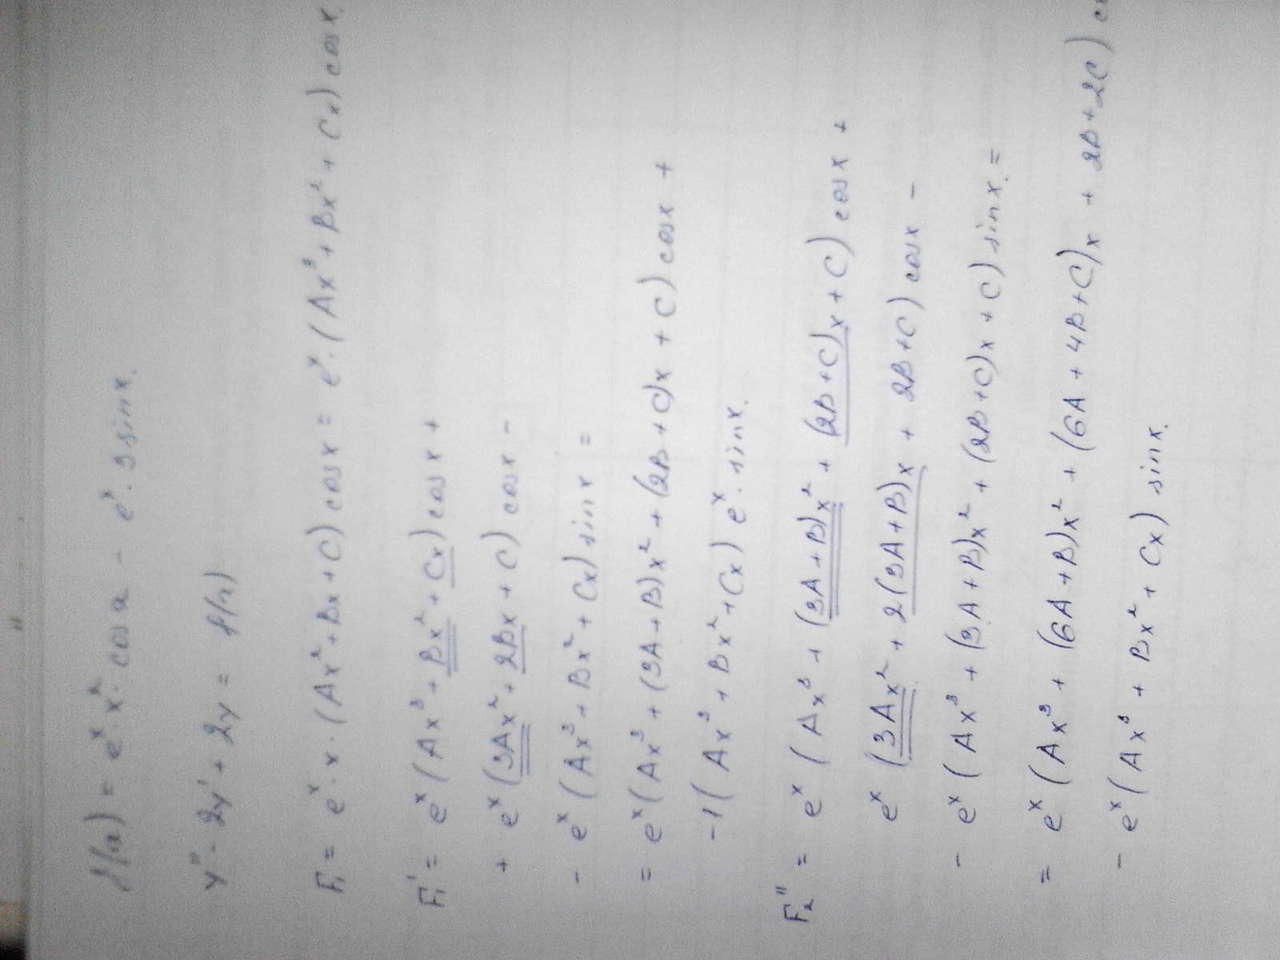 f(x) = eˣ x² · cos x - eˣ · 3 sin x.
y'' - 2y' + 2y = f(x)
F₁ = eˣ · x · (Ax² + Bx + C) cos x = eˣ · (Ax³ + Bx² + Cx) cos x.
F₁' = eˣ (Ax³ + Bx² + Cx) cos x +
+ eˣ (3Ax² + 2Bx + C) cos x -
- eˣ (Ax³ + Bx² + Cx) sin x =
= eˣ (Ax³ + (3A + B)x² + (2B + C)x + C) cos x +
-1 (Ax³ + Bx² + Cx) eˣ · sin x.
F₂'' = eˣ (Ax³ + (3A + B)x² + (2B + C)x + C) cos x +
eˣ (3Ax² + 2(3A + B)x + 2B + C) cos x -
- eˣ (Ax³ + (3A + B)x² + (2B + C)x + C) sin x. =
= eˣ (Ax³ + (6A + B)x² + (6A + 4B + C)x + 2B + 2C)
- eˣ (Ax³ + Bx² + Cx) sin x.